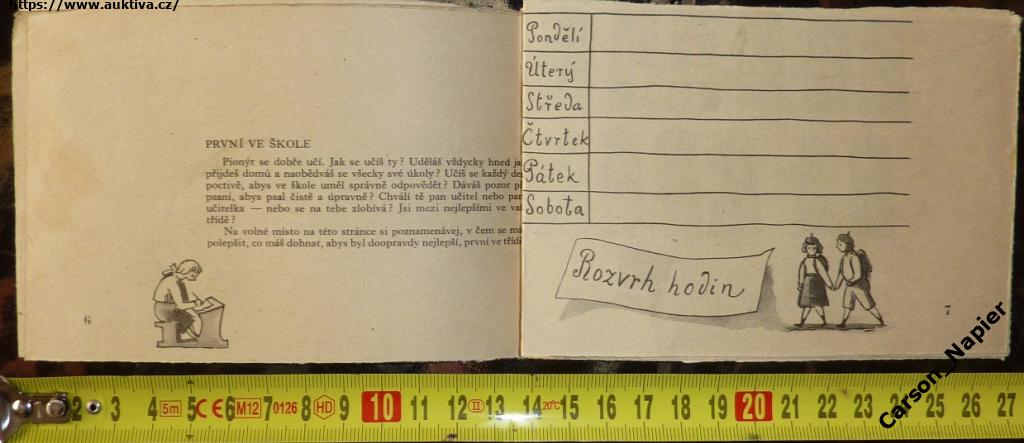 https://www.auktiva.cz/
PRVNÍ VE ŠKOLE
Pionýr se dobře učí. Jak se učíš ty? Uděláš vždycky hned ja
přijdeš domů a naobědváš se všecky své úkoly? Učíš se každý de
poctivě, abys ve škole uměl správně odpovědět? Dáváš pozor p
psaní, abys psal čistě a úpravně? Chválí tě pan učitel nebo pan
učitelka — nebo se na tebe zlobívá? Jsi mezi nejlepšími ve va
třídě?
Na volné místo na této stránce si poznamenávej, v čem se má
polepšit, co máš dohnat, abys byl doopravdy nejlepší, první ve tříd
6
Pondělí
Úterý
Středa
Čtvrtek
Pátek
Sobota
Rozvrh hodin
7
Carson_Napier
2 3 4 5m 5 CE 6 M12 7 0126 8 HD 9 10 11 12 II 13 14 20°C 15 16 17 18 19 20 21 22 23 24 25 26 27